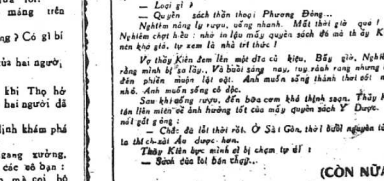 máng trên
ng? Có gì bí
của hai người,
khi Thọ hở
hai người đã
định khám phá
gang xưởng,
các cô bạn:
— Loại gì?
— Quyển sách thần thoại Phương Đông...
Nghiêm nâng ly rượu, uống nhanh. Mất thời giờ quá!
Nghiêm chợt hiểu: nhờ in lậu mấy quyển sách đó mà thầy K
nên khá giả, tự xem là nhà trí thức!
Vợ thầy Kiên xem lên một đĩa củ kiệu. Bây giờ, Nghiê
rằng mình bị sa lầy. Và buổi sáng nay, tuy rảnh rang nhưng
đến phiền muộn lạt đời. Anh muốn sống thành thơi với
nhỏ. Anh muốn sống cô độc.
Sau khi uống rượu, đến bữa cơm khá thịnh soạn. Thầy K
tán liên miên về ảnh hưởng tốt của mấy quyển sách Y Dược.
nói gắt gỏng:
— Chắc đã lỗi thời rồi. Ở Sài Gòn, thời buổi nguyên tử
ta thích sách Âu dược hơn.
Thầy Kiên bực mình vì bị chạm tự ái:
— Sách của tôi bán chạy...
(CÒN NỮA